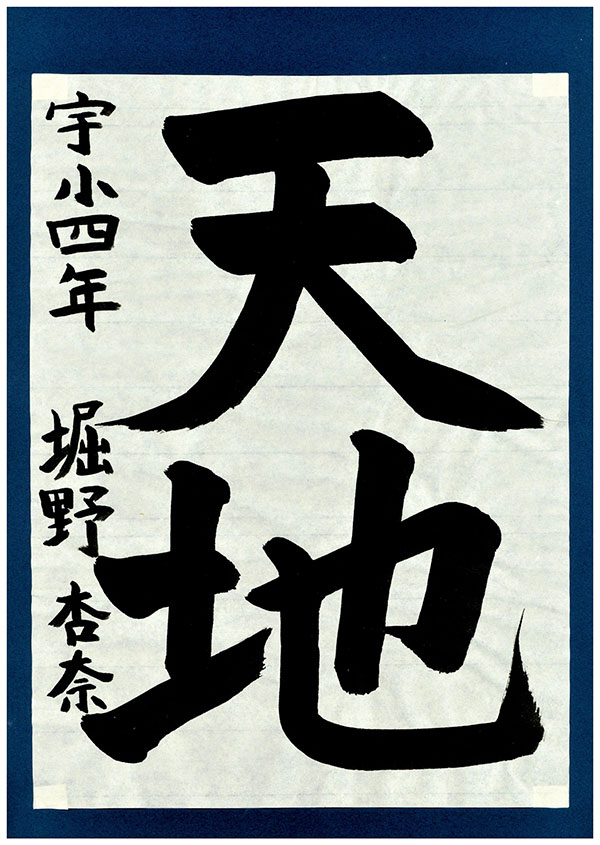 天地
宇小四年 堀野 杏奈